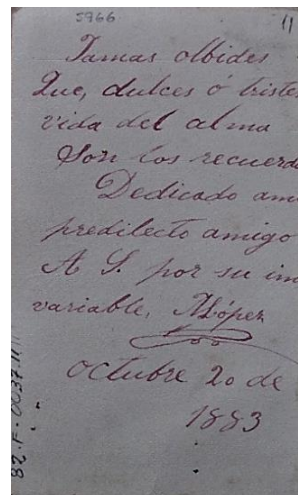 5966
11
Jamas olbides
Que, dulces ó triste
vida del alma
Son los recuerdo
Dedicado ami
predilecto amigo
A S. por su in
variable, ALópez
octubre 20 de
1883
82-F-0037-11